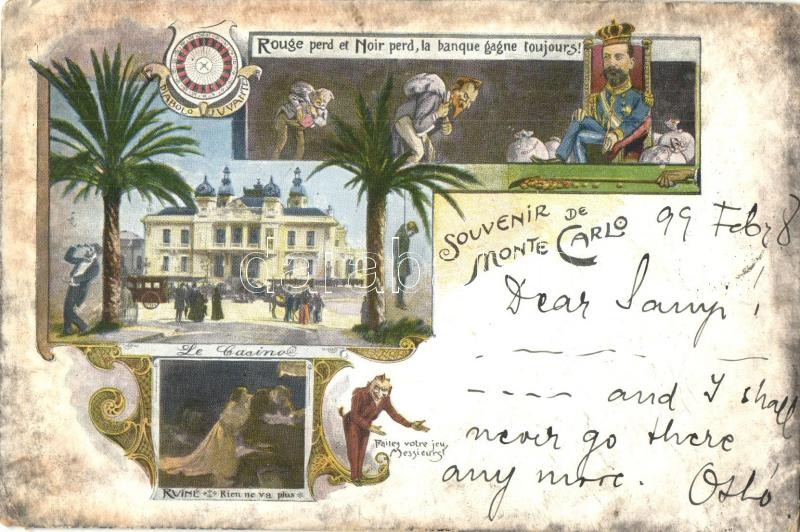 Rouge perd et Noir perd, la banque gagne toujours!
DIABOLO JUVANTE
SOUVENIR DE
MONTE CARLO
99 Feby 8
Dear
and I shall
never go there
any more.
Le Casino
Faites votre jeu,
Messieurs!
RUINE Rien ne va plus